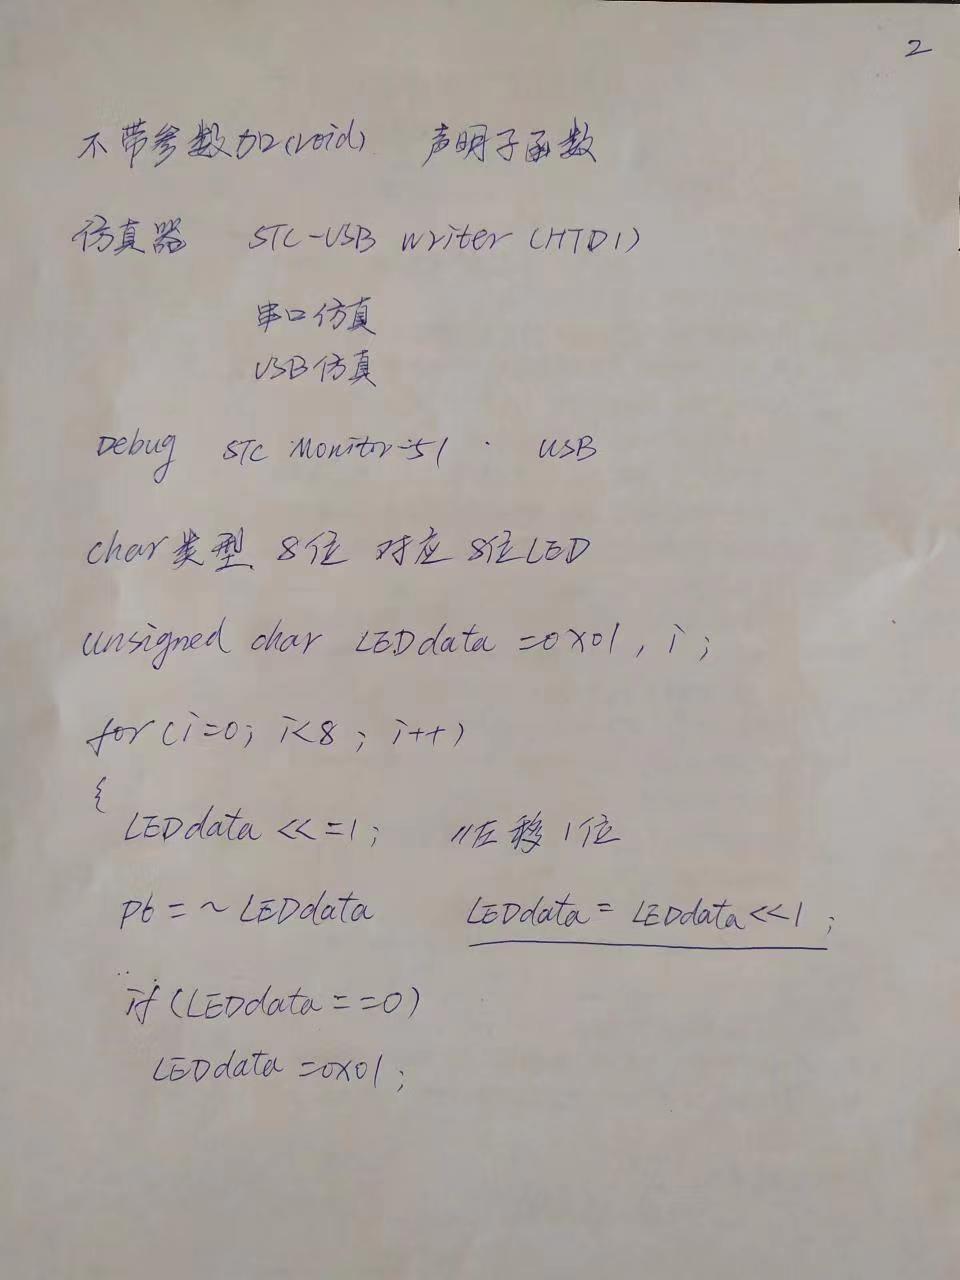 2
不带参数加(void) 声明子函数
仿真器 STC-USB writer (HID1)
串口仿真
USB仿真
Debug STC Monitor-51 . USB
char类型 8位 对应 8位LED
unsigned char LEDdata =0x01, i;
for(i=0; i<8; i++)
{
LEDdata <<=1; //左移1位
P6=~LEDdata LEDdata= LEDdata<<1;
if(LEDdata==0)
LEDdata =0x01;